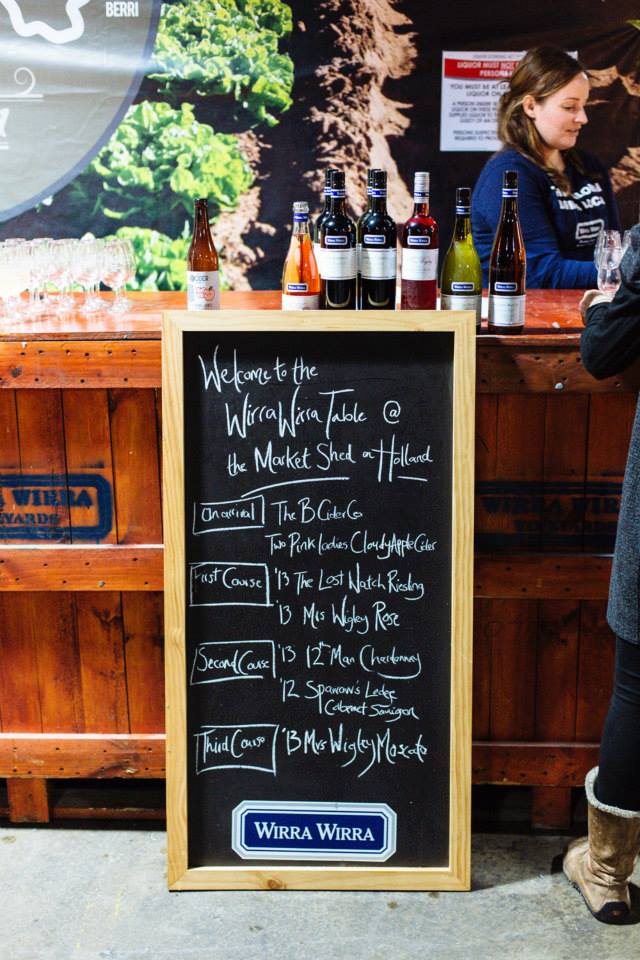 BERRI
LIQUOR MUST NOT
WIRRA WIRRA
YARDS
Welcome to the
Wirra Wirra Table @
the Market Shed on Holland
On arrival
The B Cider Co
Two Pink Ladies Cloudy Apple Cider
First Course
'13 The Lost Watch Riesling
'13 Mrs Wigley Rose
Second Course
'13 12th Man Chardonnay
'12 Sparrow's Ledge
Cabernet Sauvignon
Third Course
'13 Mrs Wigley Moscato
WIRRA WIRRA